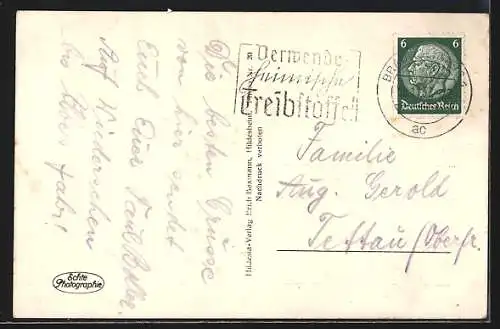 Die besten Grüsse
von hier sendet
Euch Euer Paul
Auf Wiedersehen
Verwende
heimische
Treibstoffe!
6 6
Deutsches Reich
BR
ac
Familie
Aug. Gerold
Tettau/Oberfr.
Hildesia-Verlag Erich Beermann, Hildesheim
Nachdruck verboten
Echte
Photographie